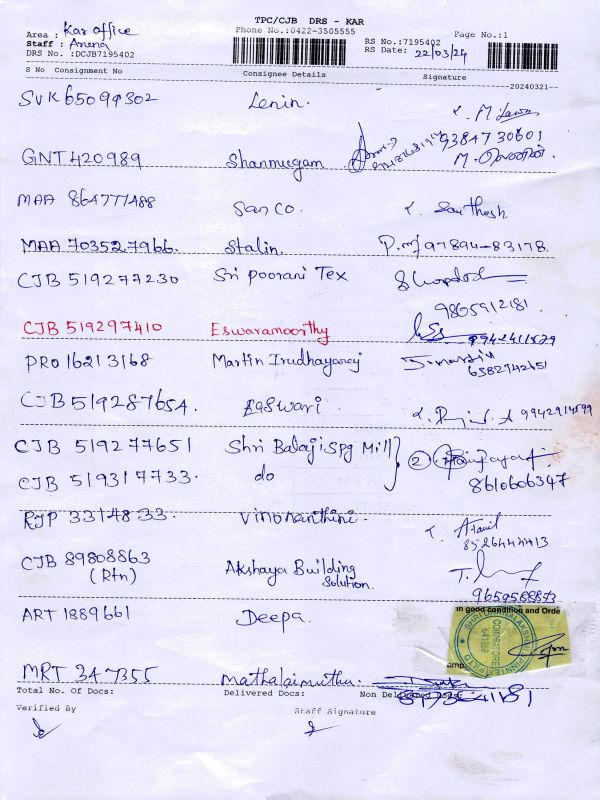 TPC/CJB DRS - KAR
Area : Kar office
Phone No.:0422-3505555
Page No.:1
Staff : Anena
RS No.:7195402
DRS No. :DCJB7195402
RS Date: 22/03/24
S No Consignment No Consignee Details Signature
--20240321--
SVK 65099302 Lenin.
9384730601
GNT 420989 Shanmugam M. லெனின்.
MAA 864777488 San Co. Santhosh
MAA 703527966. Stalin. P.M 97894-83178.
CJB 519277230 Sri Poorani Tex
9865912181
CJB 519297410 Eswaramoorthy 9942411529
PRO 16213168 Martin Irudhayaraj
6382942651
CJB 519287654. Easwari. 9942914599
CJB 519277651 Shri Balaji Spg Mill
CJB 519317733. do 2
8610606347
RJP 3314833. Vinonanthini.
8526444413
CJB 89808863 Akshaya Building
(Rtn) Solution.
9659568873
ART 1889661 Deepa.
In good condition and Orde
COIMBATORE
MRT 347355 Mathalaimuthu.
Total No. Of Docs: Delivered Docs: Non Delivered Docs:
Verified By Staff Signature